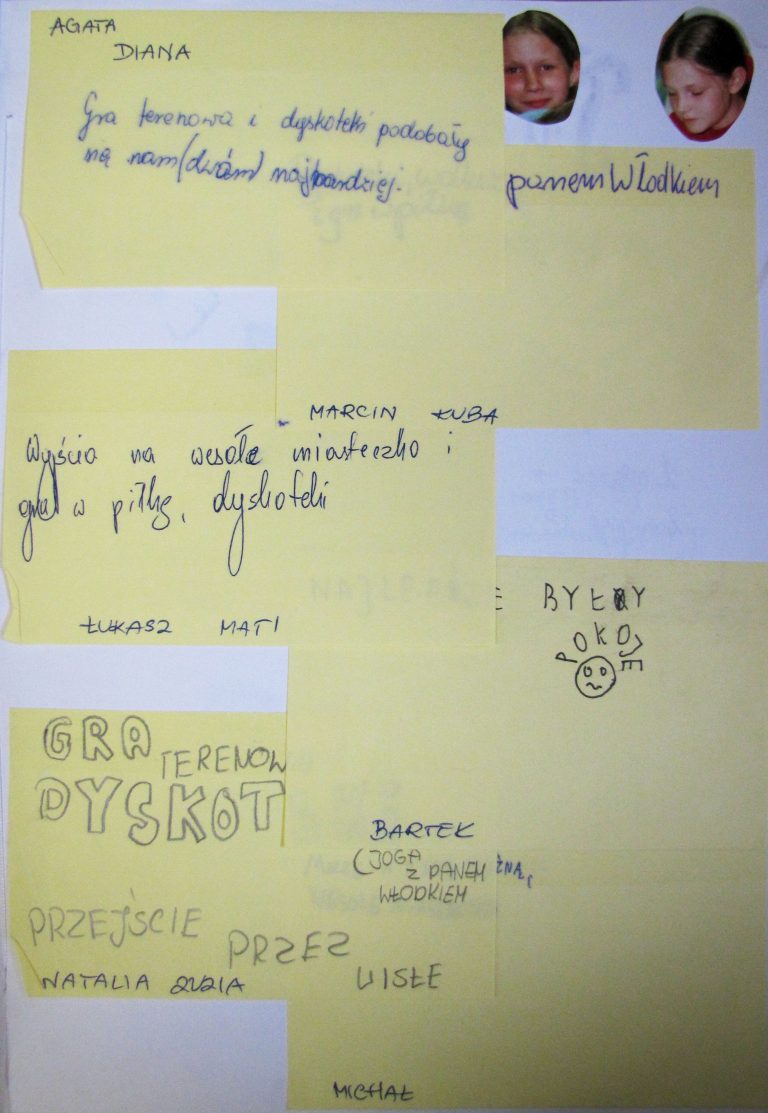 AGATA
DIANA
Gra terenowa i dyskoteki podobały
nam (dwóm) najbardziej.
panem Włodkiem
MARCIN KUBA
Wyjścia na wesołe miasteczko i
gra w piłkę, dyskoteki
ŁUKASZ MATI
E BYŁY
POKOJE
GRA
TERENOW
DYSKOT
BARTEK
(JOGA
Z PANEM
WŁODKIEM
ŻNA,
PRZEJŚCIE
PRZEZ
WISŁE
NATALIA ZUZIA
MICHAŁ